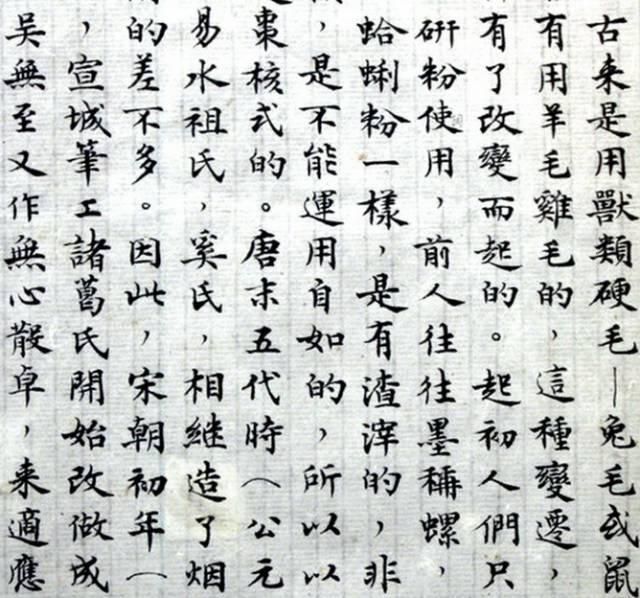 古来是用獸類硬毛—兔毛或鼠
有用羊毛雞毛的，這種變遷，
有了改變而起的。起初人們只
研粉使用，前人往往墨稱螺，
蛤蜊粉一樣，是有渣滓的，非
，是不能運用自如的，所以以
棗核式的。唐末五代時（公元
易水祖氏，奚氏，相继造了烟
的差不多。因此，宋朝初年（
，宣城筆工諸葛氏開始改做成
吳無至又作無心散卓，来適應